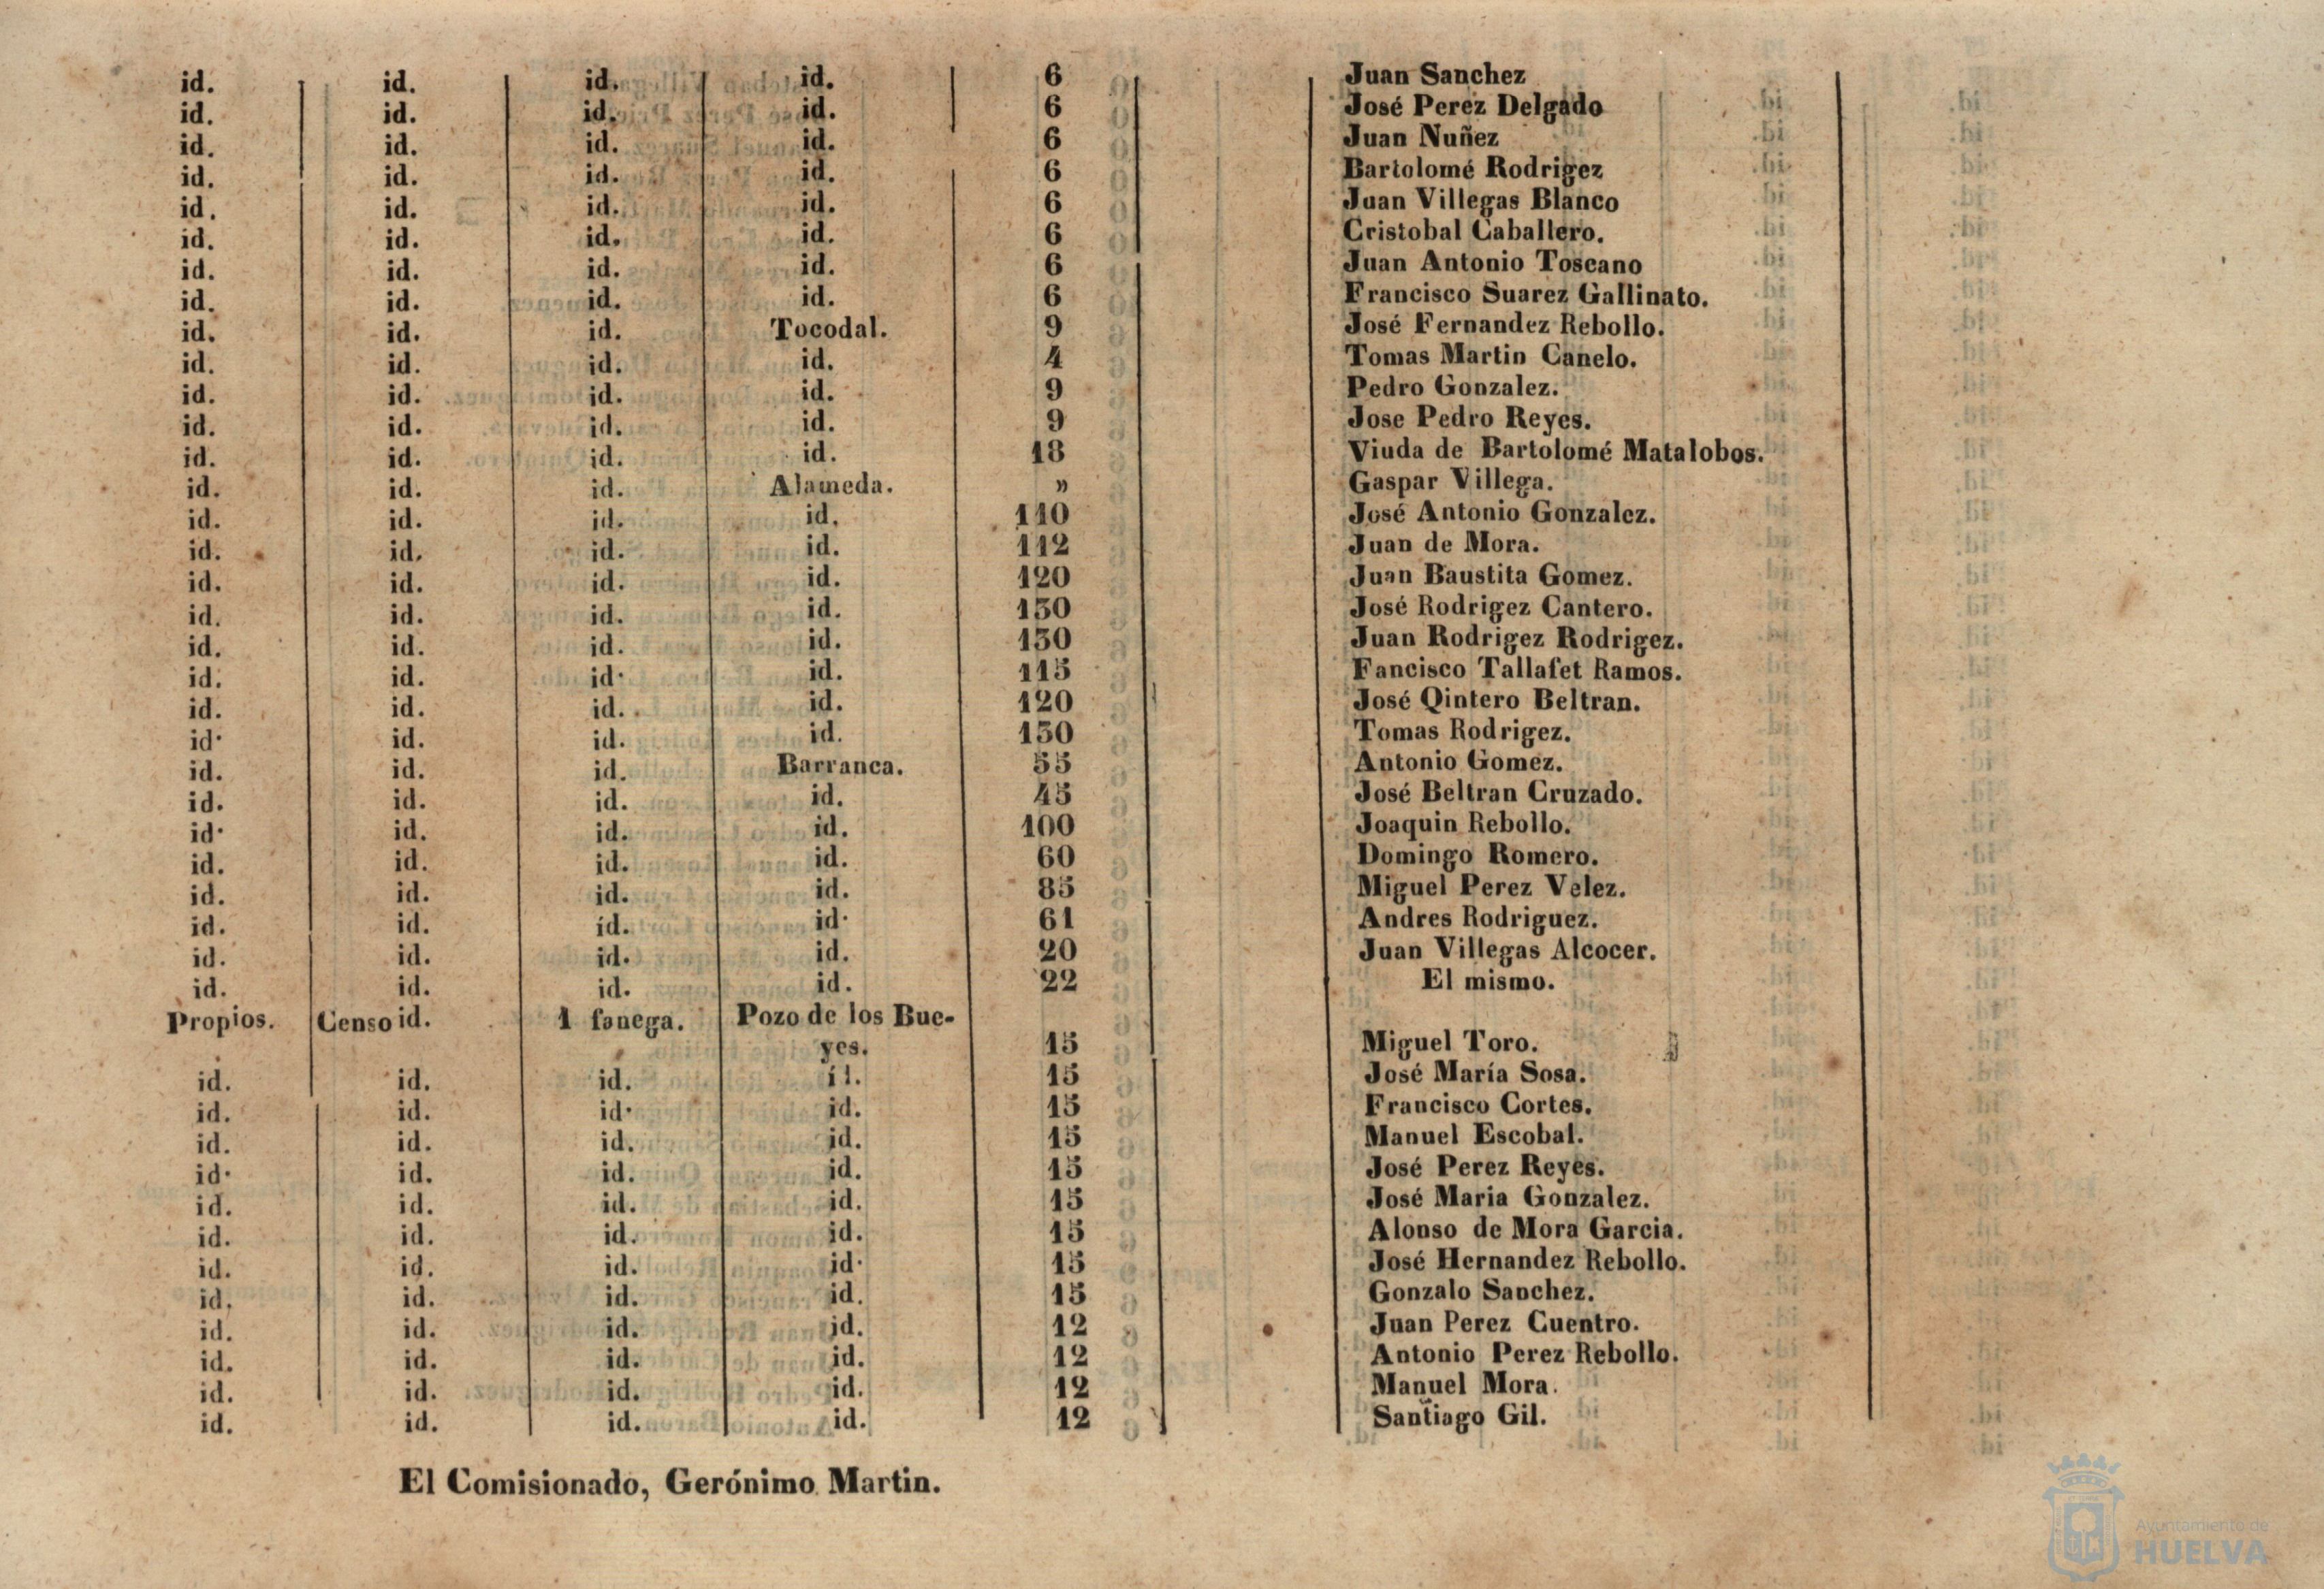 id. id. id. id. 6 Juan Sanchez
id. id. id. id. 6 José Perez Delgado
id. id. id. id. 6 Juan Nuñez
id. id. id. id. 6 Bartolomé Rodrigez
id. id. id. id. 6 Juan Villegas Blanco
id. id. id. id. 6 Cristobal Caballero.
id. id. id. id. 6 Juan Antonio Toscano
id. id. id. id. 6 Francisco Suarez Gallinato.
id. id. id. Tocodal. 9 José Fernandez Rebollo.
id. id. id. id. 4 Tomas Martin Canelo.
id. id. id. id. 9 Pedro Gonzalez.
id. id. id. id. 9 Jose Pedro Reyes.
id. id. id. id. 18 Viuda de Bartolomé Matalobos.
id. id. id. Alameda. » Gaspar Villega.
id. id. id. id. 110 José Antonio Gonzalez.
id. id. id. id. 112 Juan de Mora.
id. id. id. id. 120 Juan Baustita Gomez.
id. id. id. id. 130 José Rodrigez Cantero.
id. id. id. id. 130 Juan Rodrigez Rodrigez.
id. id. id. id. 115 Fancisco Tallafet Ramos.
id. id. id. id. 120 José Qintero Beltran.
id. id. id. id. 130 Tomas Rodrigez.
id. id. id. Barranca. 55 Antonio Gomez.
id. id. id. id. 45 José Beltran Cruzado.
id. id. id. id. 100 Joaquin Rebollo.
id. id. id. id. 60 Domingo Romero.
id. id. id. id. 85 Miguel Perez Velez.
id. id. id. id. 61 Andres Rodriguez.
id. id. id. id. 20 Juan Villegas Alcocer.
id. id. id. id. 22 El mismo.
Propios. Censo id. 1 fanega. Pozo de los Bue-
yes. 15 Miguel Toro.
id. id. id. id. 15 José María Sosa.
id. id. id. id. 15 Francisco Cortes.
id. id. id. id. 15 Manuel Escobal.
id. id. id. id. 15 José Perez Reyes.
id. id. id. id. 15 José Maria Gonzalez.
id. id. id. id. 15 Alonso de Mora Garcia.
id. id. id. id. 15 José Hernandez Rebollo.
id. id. id. id. 15 Gonzalo Sanchez.
id. id. id. id. 12 Juan Perez Cuentro.
id. id. id. id. 12 Antonio Perez Rebollo.
id. id. id. id. 12 Manuel Mora.
id. id. id. id. 12 Santiago Gil.
El Comisionado, Gerónimo Martin.
Ayuntamiento de
HUELVA